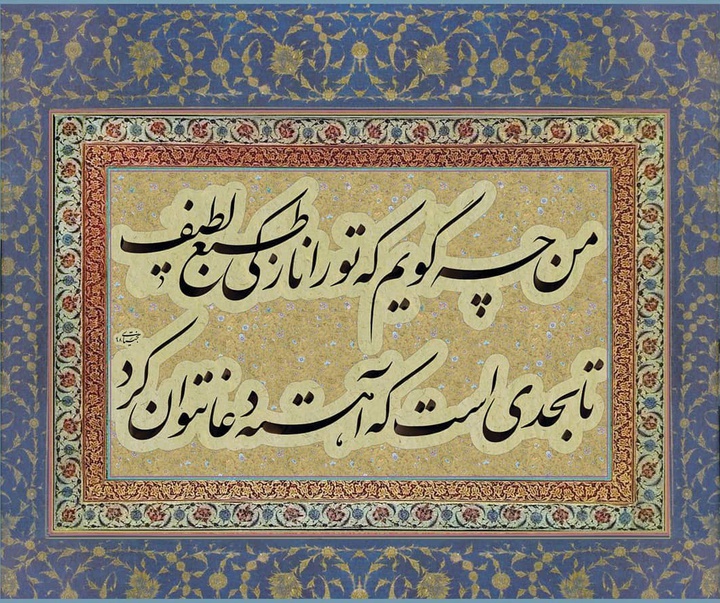 من چه گویم که تو را نازکی طبع لطیف
تا بحدی است که آهسته دعا نتوان کرد